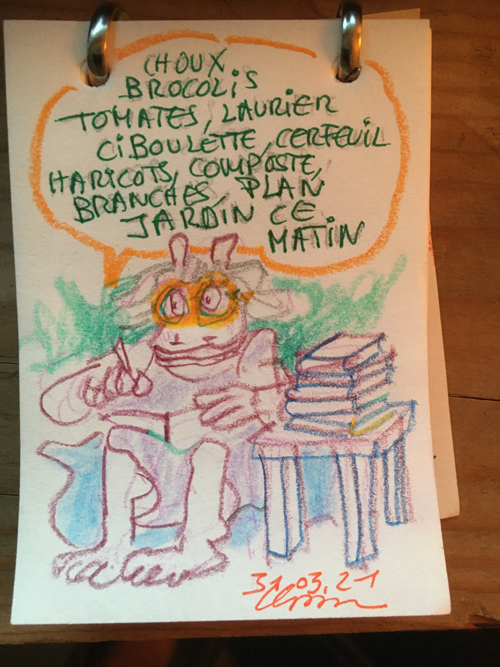 CHOUX
BROCOLIS
TOMATES, LAURIER
CIBOULETTE, CERFEUIL
HARICOTS, COMPOSTE,
BRANCHES, PLAN
JARDIN CE
MATIN
31.03.21